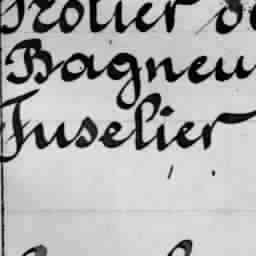 Trolier de
Bagneu
Fuselier